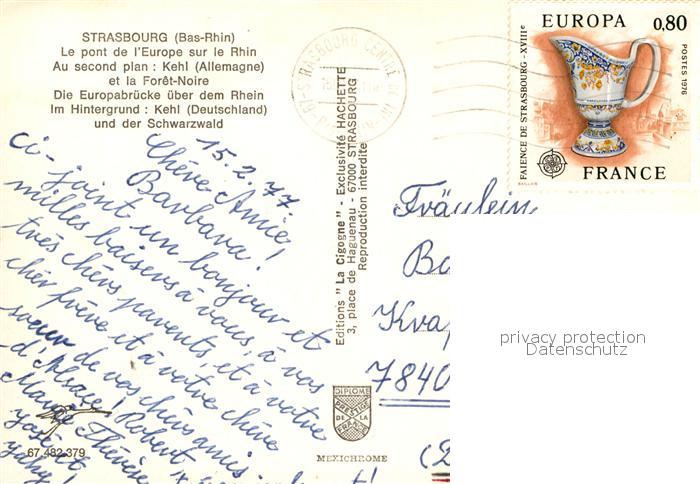 STRASBOURG (Bas-Rhin)
Le pont de l'Europe sur le Rhin
Au second plan : Kehl (Allemagne)
et la Forêt-Noire
Die Europabrücke über dem Rhein
Im Hintergrund : Kehl (Deutschland)
und der Schwarzwald
15.2.77
Chère Amie,
Barbara!
ci-joint un bonjour et
milles baisers à vous, à vos
très chèrs parents, et à votre
chèr frère et à votre chère
soeur de vos chèrs amis
d'Alsace! Robert,
Marie Thérèse
José et
67.482.379
Editions "La Cigogne" - Exclusivité HACHETTE
3, place de Haguenau - 67000 STRASBOURG
Reproduction interdite
DIPLOME
PRESTIGE
DE LA
FRANCE
MEXICHROME
67-STRASBOURG CENTRE
EUROPA 0,80
POSTES 1976
FAIENCE DE STRASBOURG - XVIIIe
FRANCE
Fräulein
7840
privacy protection
Datenschutz